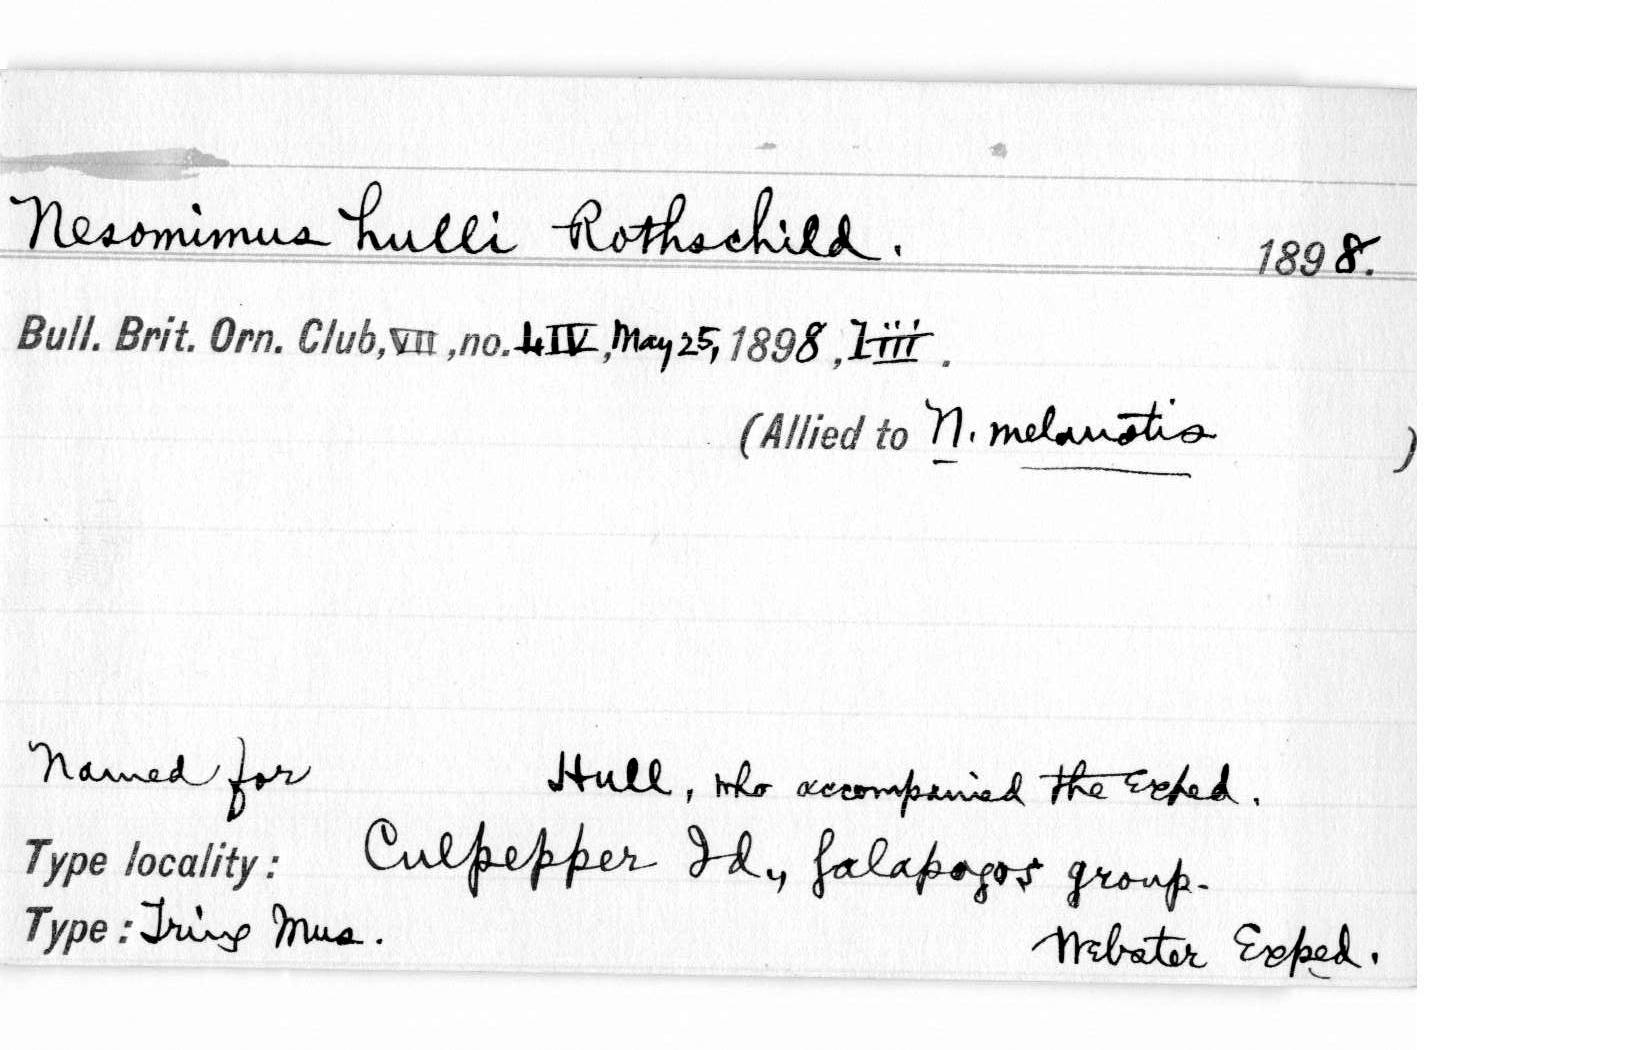 Nesomimus hulli Rothschild. 1898.
Bull. Brit. Orn. Club, VII, no. LIV, May 25, 1898, liii.
(Allied to N. melanotis )
Named for Hull, who accompanied the Exped.
Type locality: Culpepper Id., Galapagos group.
Type: Tring Mus. Webster Exped.